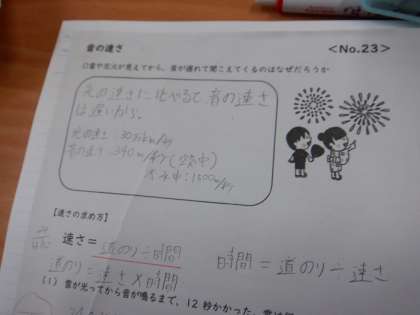 音の速さ <No.23>
○音や花火が見えてから、音が遅れて聞こえてくるのはなぜだろうか
光の速さに比べると音の速さ
は遅いから。
光の速さ:30万km/秒
音の速さ:340m/秒(空気中)
水中:1500m/秒
【速さの求め方】
速さ=道のり÷時間
道のり=速さ×時間 時間=道のり÷速さ
(1) 音が光ってから音が鳴るまで、12秒かかった。